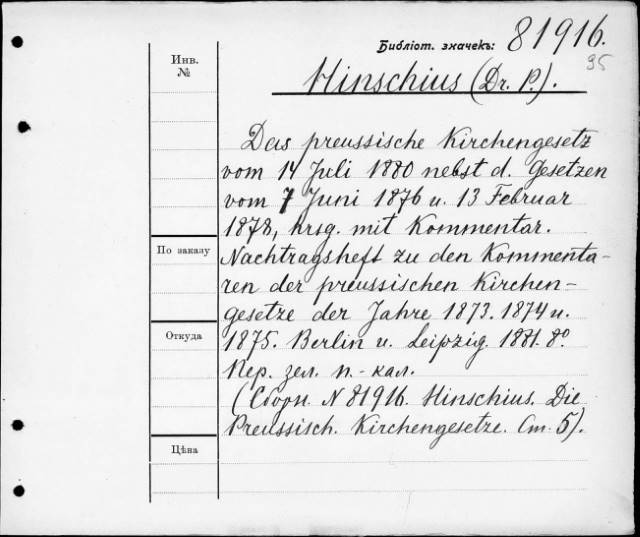 Библіот. значекъ: 81916.
95
Инв.
№
Hinschius (Dr. P.).
Das preussische Kirchengesetz
vom 14 Juli 1880 nebst d. Gesetzen
vom 7 Juni 1876 u. 13 Februar
1878, hrsg. mit Kommentar.
По заказу
Nachtragsheft zu den Kommenta-
ren der preussischen Kirchen-
gesetze der Jahre 1873. 1874 u.
Откуда
1875. Berlin u. Leipzig. 1881. 8º
Пер. зел. п.-кал.
(Сборн. N 81916. Hinschius. Die
Preussisch. Kirchengesetze. Ст. 5).
Цѣна